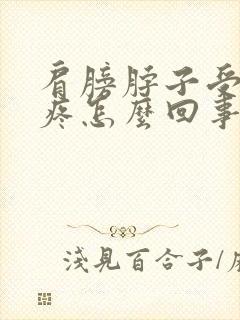 肩膀脖子受
疼怎麼回事
淺見百合子/